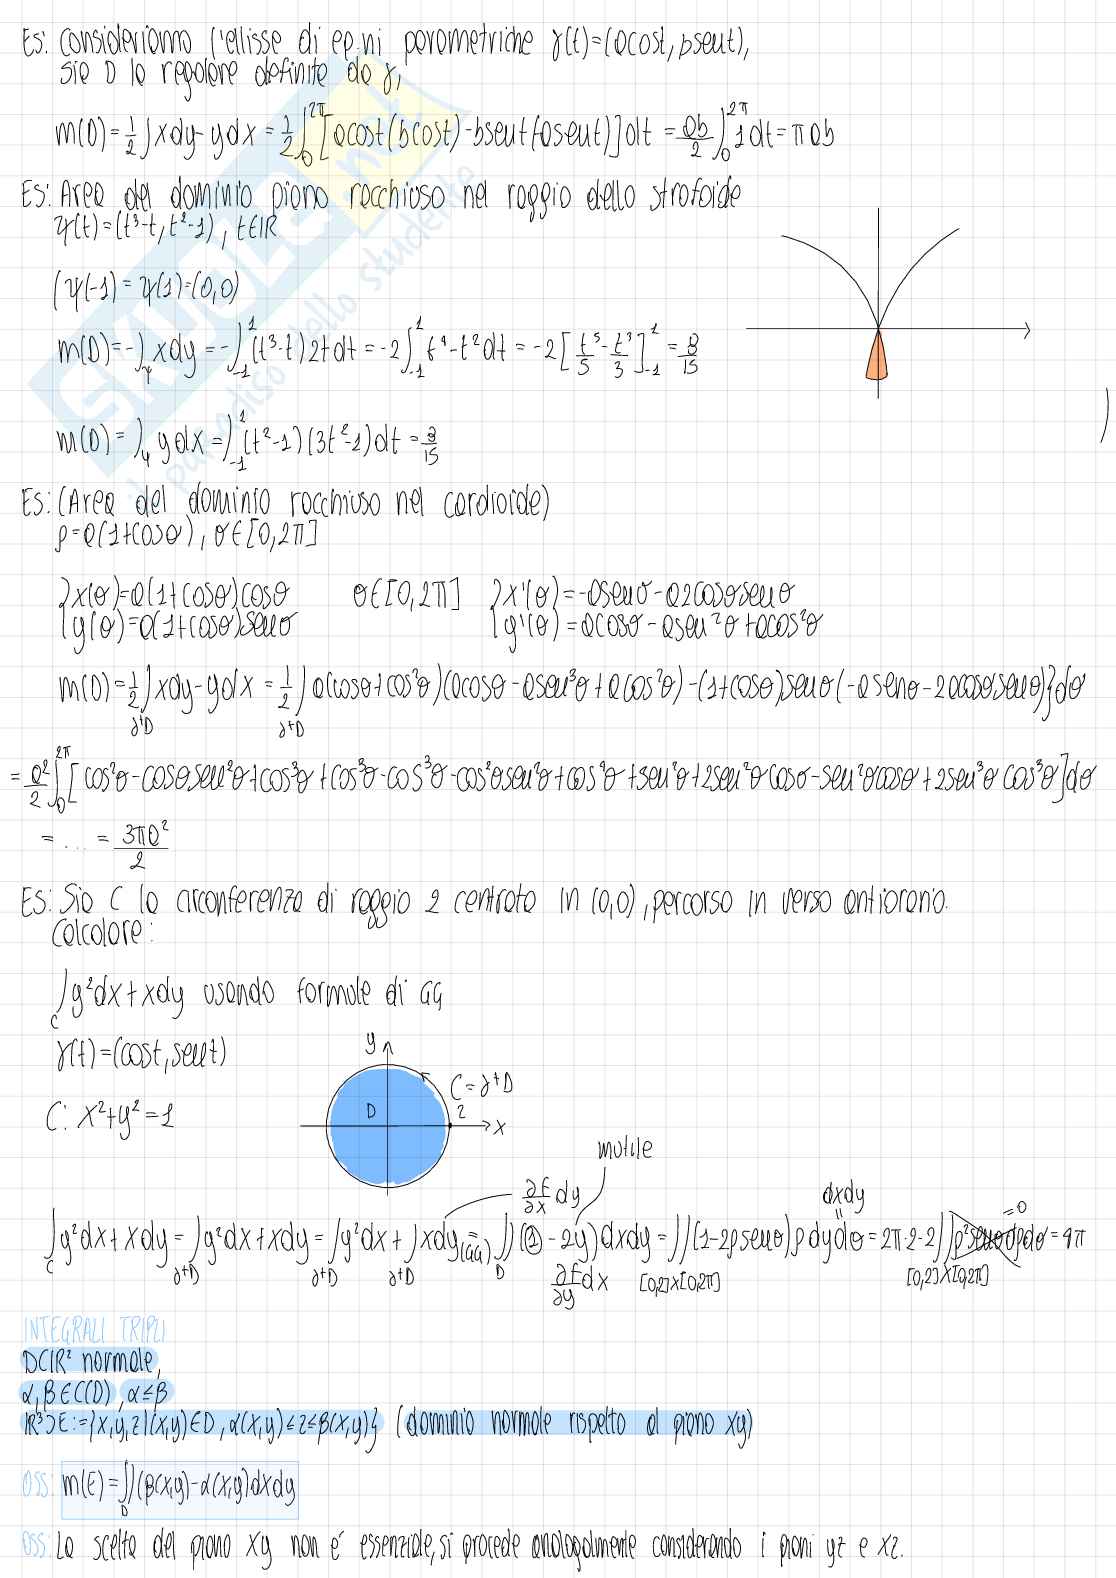 Es: Consideriamo l'ellisse di eq.ni parametriche γ(t)=(acost, bsent),
sia D la regolare definita da γ,
m(D)=1/2∫xdy-ydx = 1/2∫₀^2π[acost(bcost)-bsent(-asent)]dt = ab/2∫₀^2π 1dt = πab
Es: Area del dominio piano racchiuso nel raggio dello strofoide
ψ(t)=(t³-t, t²-1), t∈ℝ
(ψ(-1)=ψ(1)=(0,0)
m(D)=-∫_ψ xdy = -∫₋₁^1(t³-t)2tdt = -2∫₋₁^1 t⁴-t²dt = -2[t⁵/5-t³/3]₋₁^1 = 8/15
m(D)=∫_ψ ydx = ∫₋₁^1(t²-1)(3t²-1)dt = 8/15
Es: (Area del dominio racchiuso nel cardioide)
ρ=a(1+cosθ), θ∈[0,2π]
{x(θ)=a(1+cosθ)cosθ θ∈[0,2π] {x'(θ)=-asenθ-a2cosθsenθ
{y(θ)=a(1+cosθ)senθ {y'(θ)=acosθ-asen²θ+acos²θ
m(D)=1/2∫_∂⁺D xdy-ydx = 1/2∫_∂⁺D a(cosθ+cos²θ)(acosθ-asen²θ+a(cos²θ)-(1+cosθ)senθ(-asenθ-2acosθsenθ)}dθ
= a²/2∫₀^2π[cos²θ-cosθsen²θ+cos³θ+cos³θ-cos³θ-cos²θsen²θ+cos⁴θ+3sen²θ+2sen²θcosθ-sen²θcosθ+2sen³θcos³θ]dθ
= ... = 3πa²/2
Es: Sia C la circonferenza di raggio 2 centrata in (0,0), percorso in verso antiorario.
Calcolare:
∫_C y²dx+xdy usando formule di GG
γ(t)=(cost, sent)
C: x²+y²=1
y
C=∂⁺D
D
2
x
inutile
∂F/∂x dy
dxdy
=0
∫_C y²dx+xdy = ∫_∂⁺D y²dx+xdy = ∫_∂⁺D y²dx+∫_∂⁺D xdy =(GG) ∬_D(1-2y)dxdy = ∬_[0,2]×[0,2π](1-2ρsenθ)ρdydθ = 2π·2-2∬_[0,2]×[0,2π] ρ²senθdρdθ = 4π
∂F/∂y dx
INTEGRALI TRIPLI
D⊂ℝ² normale,
α,β∈C(D), α≤β
ℝ³⊃E:={x,y,z|(x,y)∈D, α(x,y)≤z≤β(x,y)} (dominio normale rispetto al piano xy)
OSS: m(E)=∬_D(β(x,y)-α(x,y)dxdy
OSS: La scelta del piano xy non é essenziale, si procede analogalmente considerando i piani yz e xz.
SKUOLA.net
il paradiso dello studente